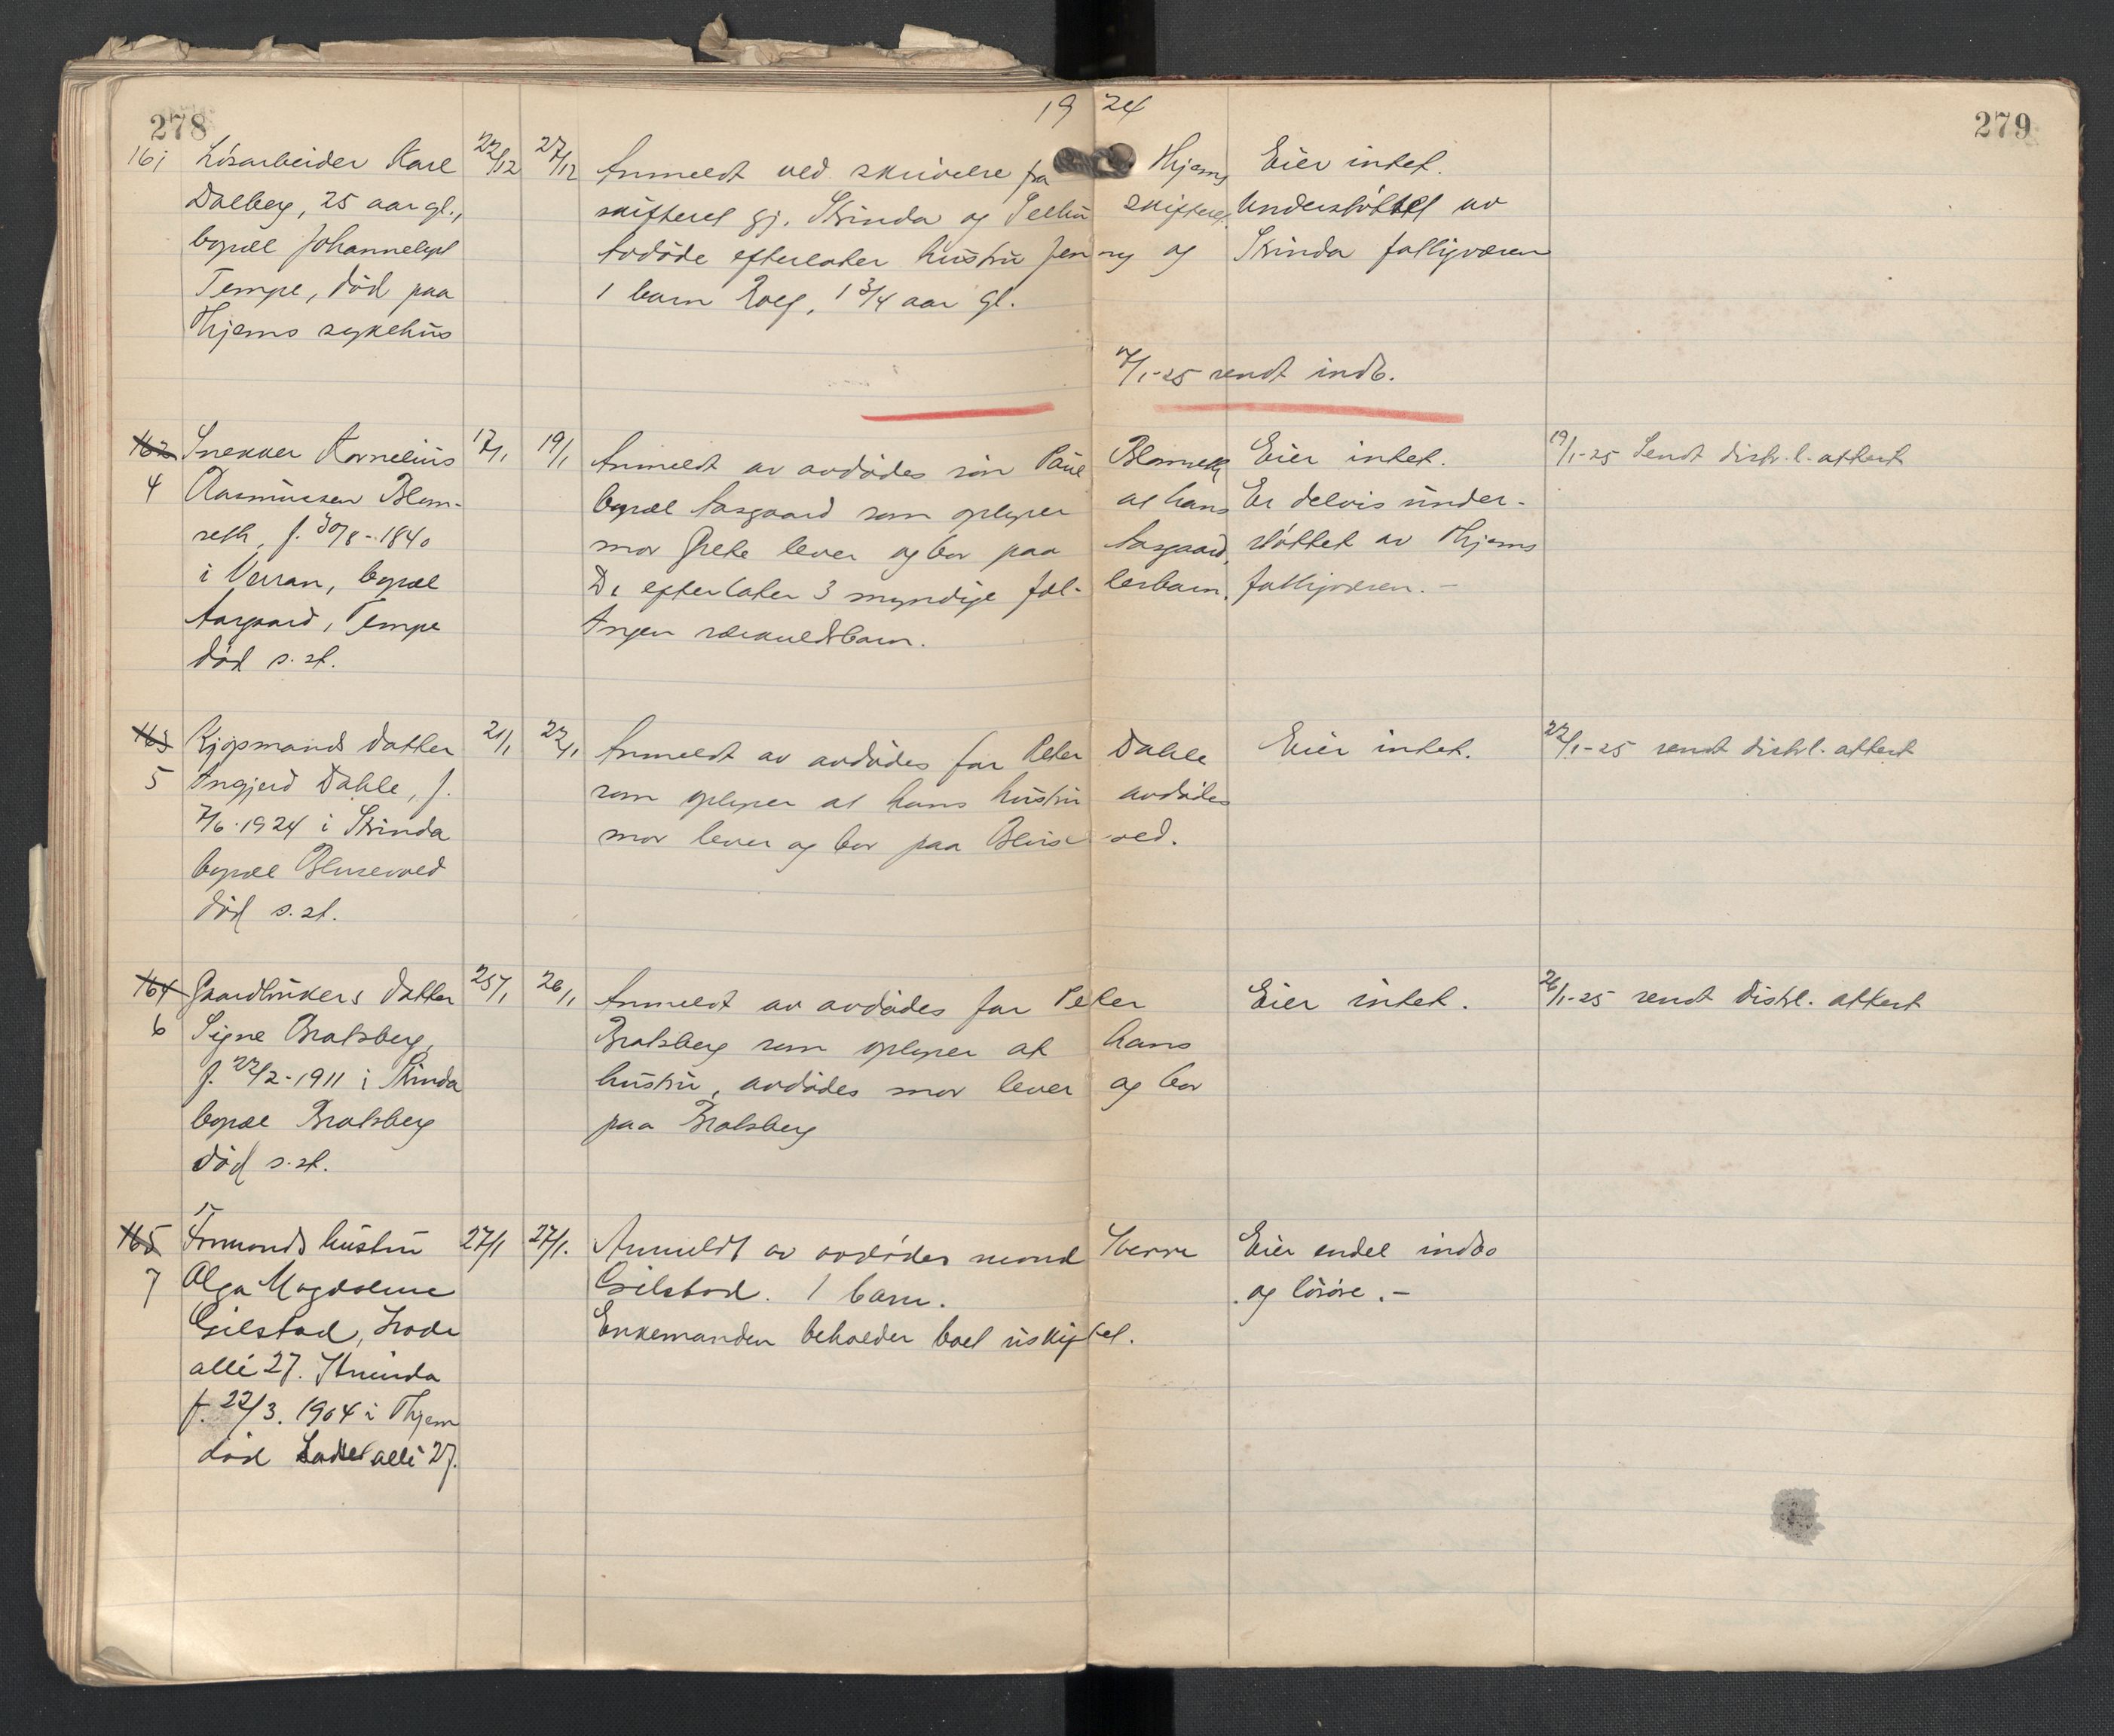 278
19 24
279
161 Løsarbeider Karl
Dalberg, 25 aar gl.,
bopæl Johanneslyst
Tempe, død paa
Thjems sykehus
22/12 27/12
Anmeldt ved skrivelse fra Thjems
skifteret gj. Strinda og Selbu skifteret.
Avdøde efterlater hustru Jenny og
1 barn Rolf, 1 3/4 aar gl.
Eier intet.
Understøttet av
Strinda fattigvæsen
7/1-25 sendt indb.
162 Snekker Kornelius
4 Rasmussen Blom-
seth, f. 30/8-1840
i Verran, bopæl
Aasgaard, Tempe
død s. st.
17/1 19/1
Anmeldt av avdødes søn Paul Blomseth
bopæl Aasgaard som oplyser at hans
mor Grete lever og bor paa Aasgaard,
De efterlater 3 myndige fæl- lesbarn.
Ingen særkuldsbarn.
Eier intet.
Er delvis under-
støttet av Thjems
fattigvæsen. -
19/1-25 Sendt distr. l. attest
163 Kjøpmands datter
5 Ingjerd Dahle, f.
7/6-1924 i Strinda
bopæl Blusevold
død s. st.
21/1 22/1
Anmeldt av avdødes far Peter Dahle
som oplyser at hans hustru avdødes
mor lever og bor paa Blusevold.
Eier intet.
22/1-25 sendt distrl. attest
164 Gaardbrukers datter
6 Signe Bratsberg,
f. 22/2-1911 i Strinda
bopæl Bratsberg
død s. st.
25/1 26/1
Anmeldt av avdødes far Peter
Bratsberg som oplyser at hans
hustru, avdødes mor lever og bor
paa Bratsberg
Eier intet.
26/1-25 sendt distrl. attest
165 Formands hustru
7 Olga Magdalene
Gilstad, Lade
allé 27. Strinda
f. 22/3. 1904 i Thjem
død Lade allé 27.
27/1 27/1.
Anmeldt av avdødes mand Sverre
Gilstad. 1 barn.
Enkemanden beholder boet uskiftet.
Eier endel indbo
og løsøre. -